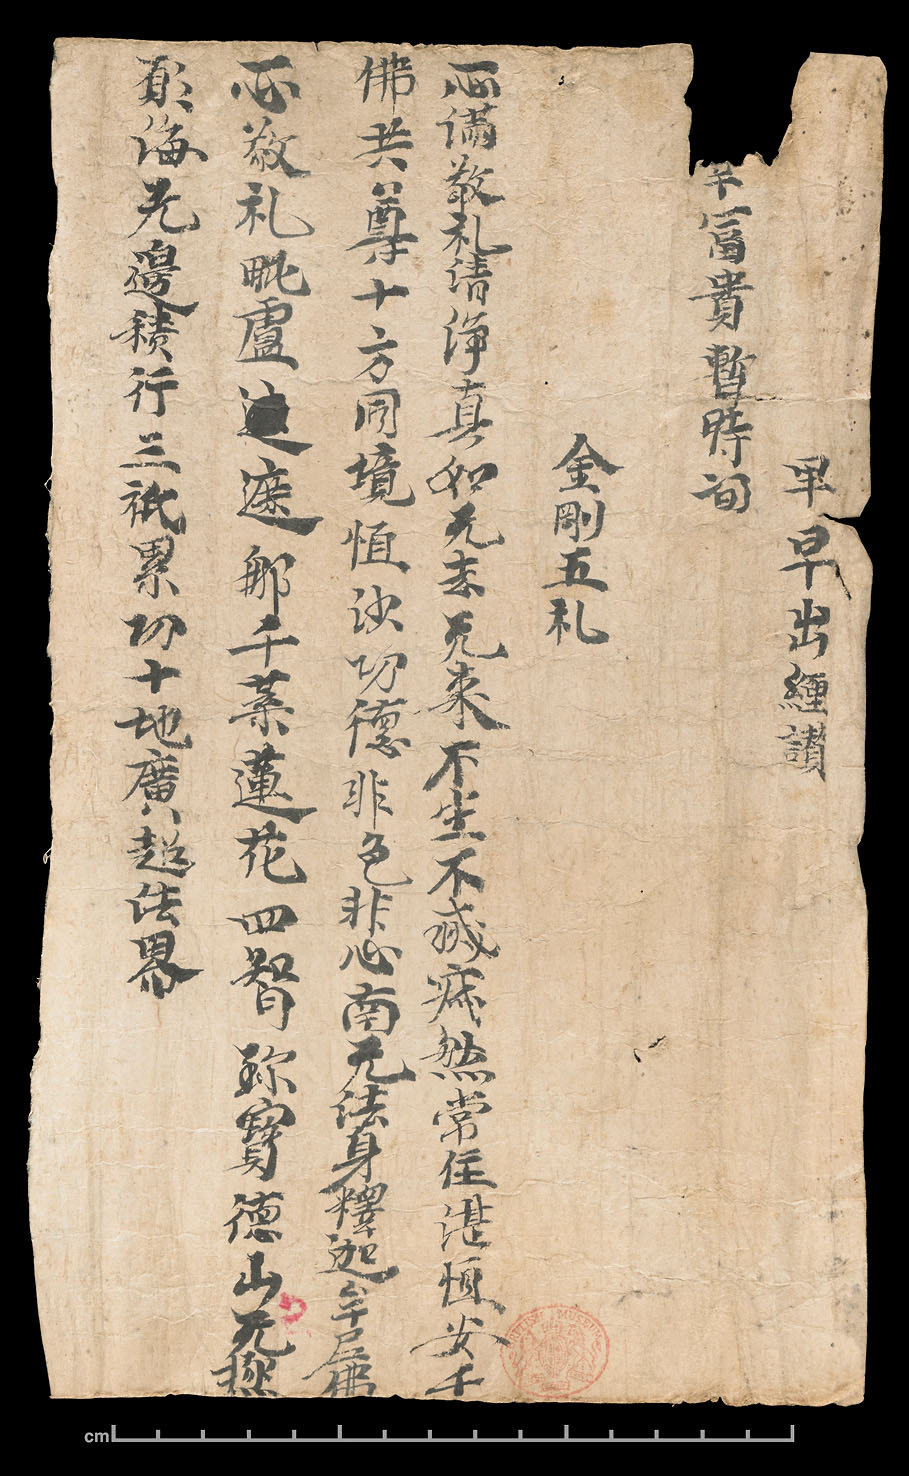 早早出纏讚
富貴暫時詢
金剛五礼
一心滿敬礼請淨真如无去无來不生不滅寂然常住湛恒安千
佛共尊十方同境恒沙功德非色非心南无法身釋迦牟尼佛
一心敬礼毗盧遮那千葉蓮花四智珎寶德山无極
願海无邊積行三祇累功十地廣超法界
cm